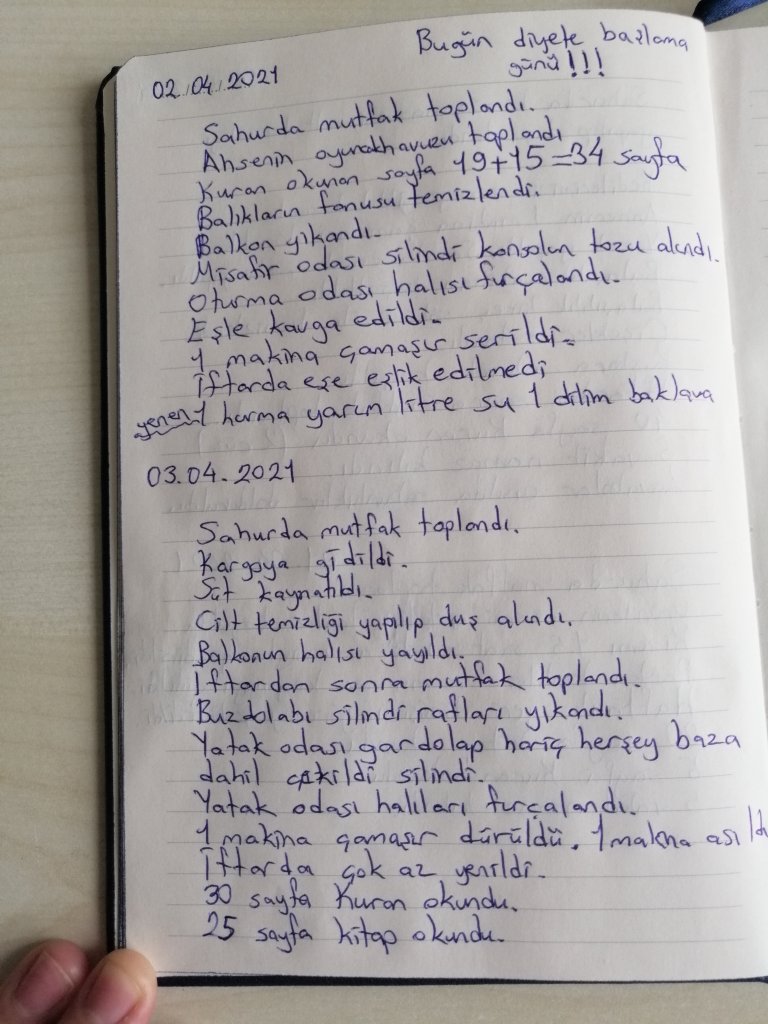 Bugün diyete başlama
günü!!!
02.04.2021
Sahurda mutfak toplandı.
Ahsenin oyuncak havuzu toplandı
Kuran okunan sayfa 19+15=34 sayfa
Balıkların fanusu temizlendi.
Balkon yıkandı.
Misafir odası silindi konsolun tozu alındı.
Oturma odası halısı fırçalandı.
Eşle kavga edildi.
1 makina çamaşır serildi.
İftarda eşe eşlik edilmedi
yenen 1 hurma yarım litre su 1 dilim baklava
03.04.2021
Sahurda mutfak toplandı.
Kargoya gidildi.
Süt kaynatıldı.
Cilt temizliği yapılıp duş alındı.
Balkonun halısı yayıldı.
İftardan sonra mutfak toplandı.
Buzdolabı silindi rafları yıkandı.
Yatak odası gardolap hariç herşey baza
dahil çekildi silindi.
Yatak odası halıları fırçalandı.
1 makina çamaşır dürüldü. 1 makna asıldı
İftarda çok az yenildi.
30 sayfa Kuran okundu.
25 sayfa kitap okundu.